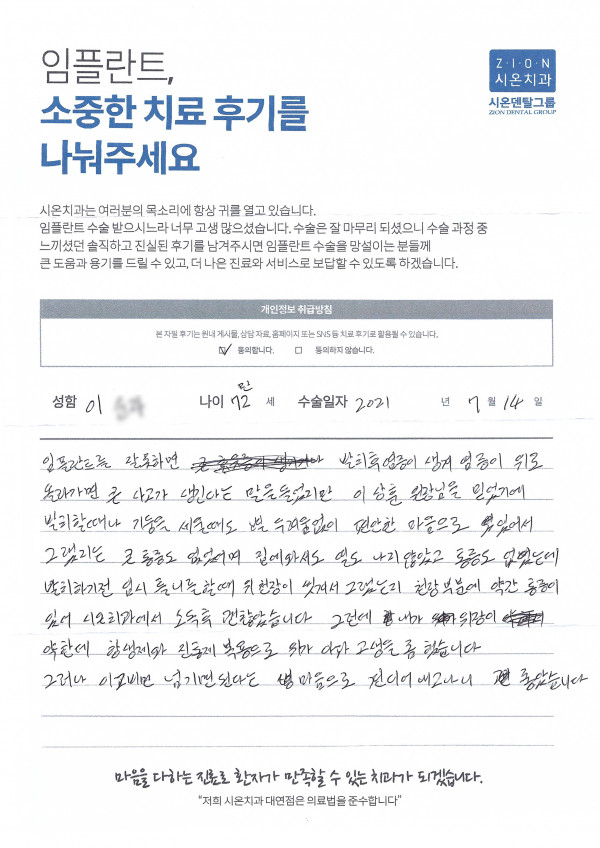 임플란트,
소중한 치료 후기를
나눠주세요
Z·I·O·N
시온치과
시온덴탈그룹
ZION DENTAL GROUP
시온치과는 여러분의 목소리에 항상 귀를 열고 있습니다.
임플란트 수술 받으시느라 너무 고생 많으셨습니다. 수술은 잘 마무리 되셨으니 수술 과정 중
느끼셨던 솔직하고 진실된 후기를 남겨주시면 임플란트 수술을 망설이는 분들께
큰 도움과 용기를 드릴 수 있고, 더 나은 진료와 서비스로 보답할 수 있도록 하겠습니다.
개인정보 취급방침
본 자필 후기는 원내 게시물, 상담 자료, 홈페이지 또는 SNS 등 치료 후기로 활용될 수 있습니다.
동의합니다. 동의하지 않습니다.
성함 이 나이 만 72 세 수술일자 2021 년 7 월 14 일
임플란트를 잘못하면 발치후 염증이 생겨 염증이 위로
올라가면 큰 사고가 생긴다는 말을 들었지만 이 상훈 원장님을 믿었기에
발치할때나 기둥을 세울때도 별 두려움없이 편안한 마음으로 있어서
그랬는지 큰 통증도 없었으며 집에와서도 열도 나지 않았고 통증도 없었는데
발치하기전 임시 틀니를 할때 위 천장이 씻겨서 그랬는지 천장부분에 약간 통증이
있어 시온치과에서 소독후 괜찮았습니다 그런데 내가 위장이
약한데 항생제와 진통제 복용으로 위가 아파 고생을 좀 했습니다
그러나 이고비만 넘기면 된다는 마음으로 견디어 내고나니 좋았습니다
마음을 다하는 진료로 환자가 만족할 수 있는 치과가 되겠습니다.
"저희 시온치과 대연점은 의료법을 준수합니다"